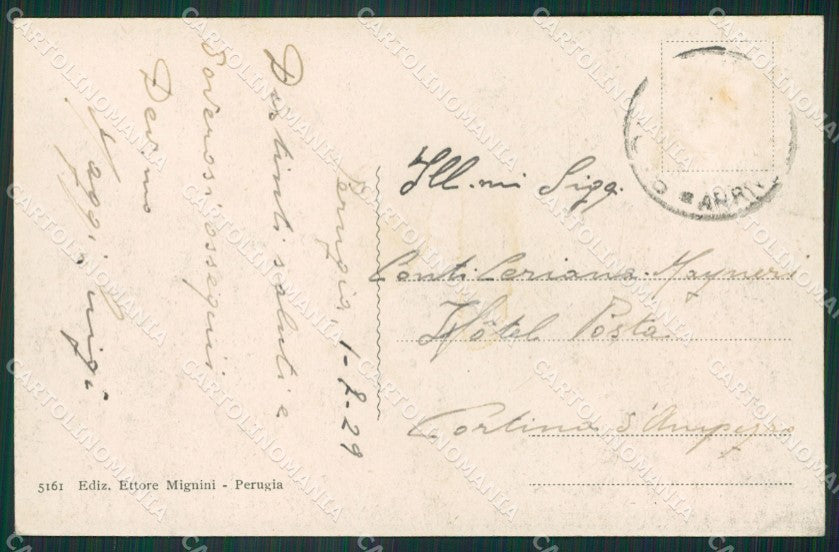 Perugia, 1-8-29
Distinti saluti e
doverosi ossequi
Dev.mo
Maggi Luigi
Ill.mi Sigg.
Conti Ceriana-Mayneri
Hôtel Posta
Cortina d'Ampezzo
ARRI
5161 Ediz. Ettore Mignini - Perugia
CARTOLINOMANIA